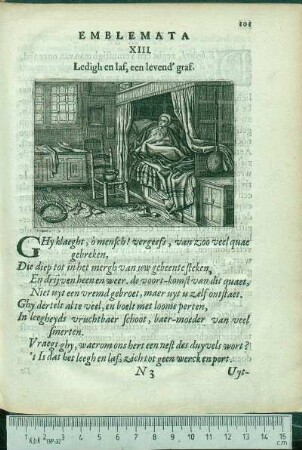 101
EMBLEMATA
XIII.
Ledigh en las, een levend' graf.
GHy klaeght, ô mensch! vergeefs, van zoo veel quae
gebreken,
Die diep tot in het mergh van uw gebeente steken,
En drijven heen en weer. de voort-komst van dit quaet,
Niet uyt een vremd gebroet, maer uyt u zelf ontstaet.
Ghy dertelt al te veel, en boelt met loome porten,
In leegheyds vruchtbaer schoot, baer-moeder van veel
smerten.
Vraegt ghy, waerom ons hert een nest des duyvels wort?
't Is dat het leegh en las, zich tot geen wercken port.
N 3
Uyt-
cm 1 2 3 4 5 6 7 8 9 10 11 12 13 14 15